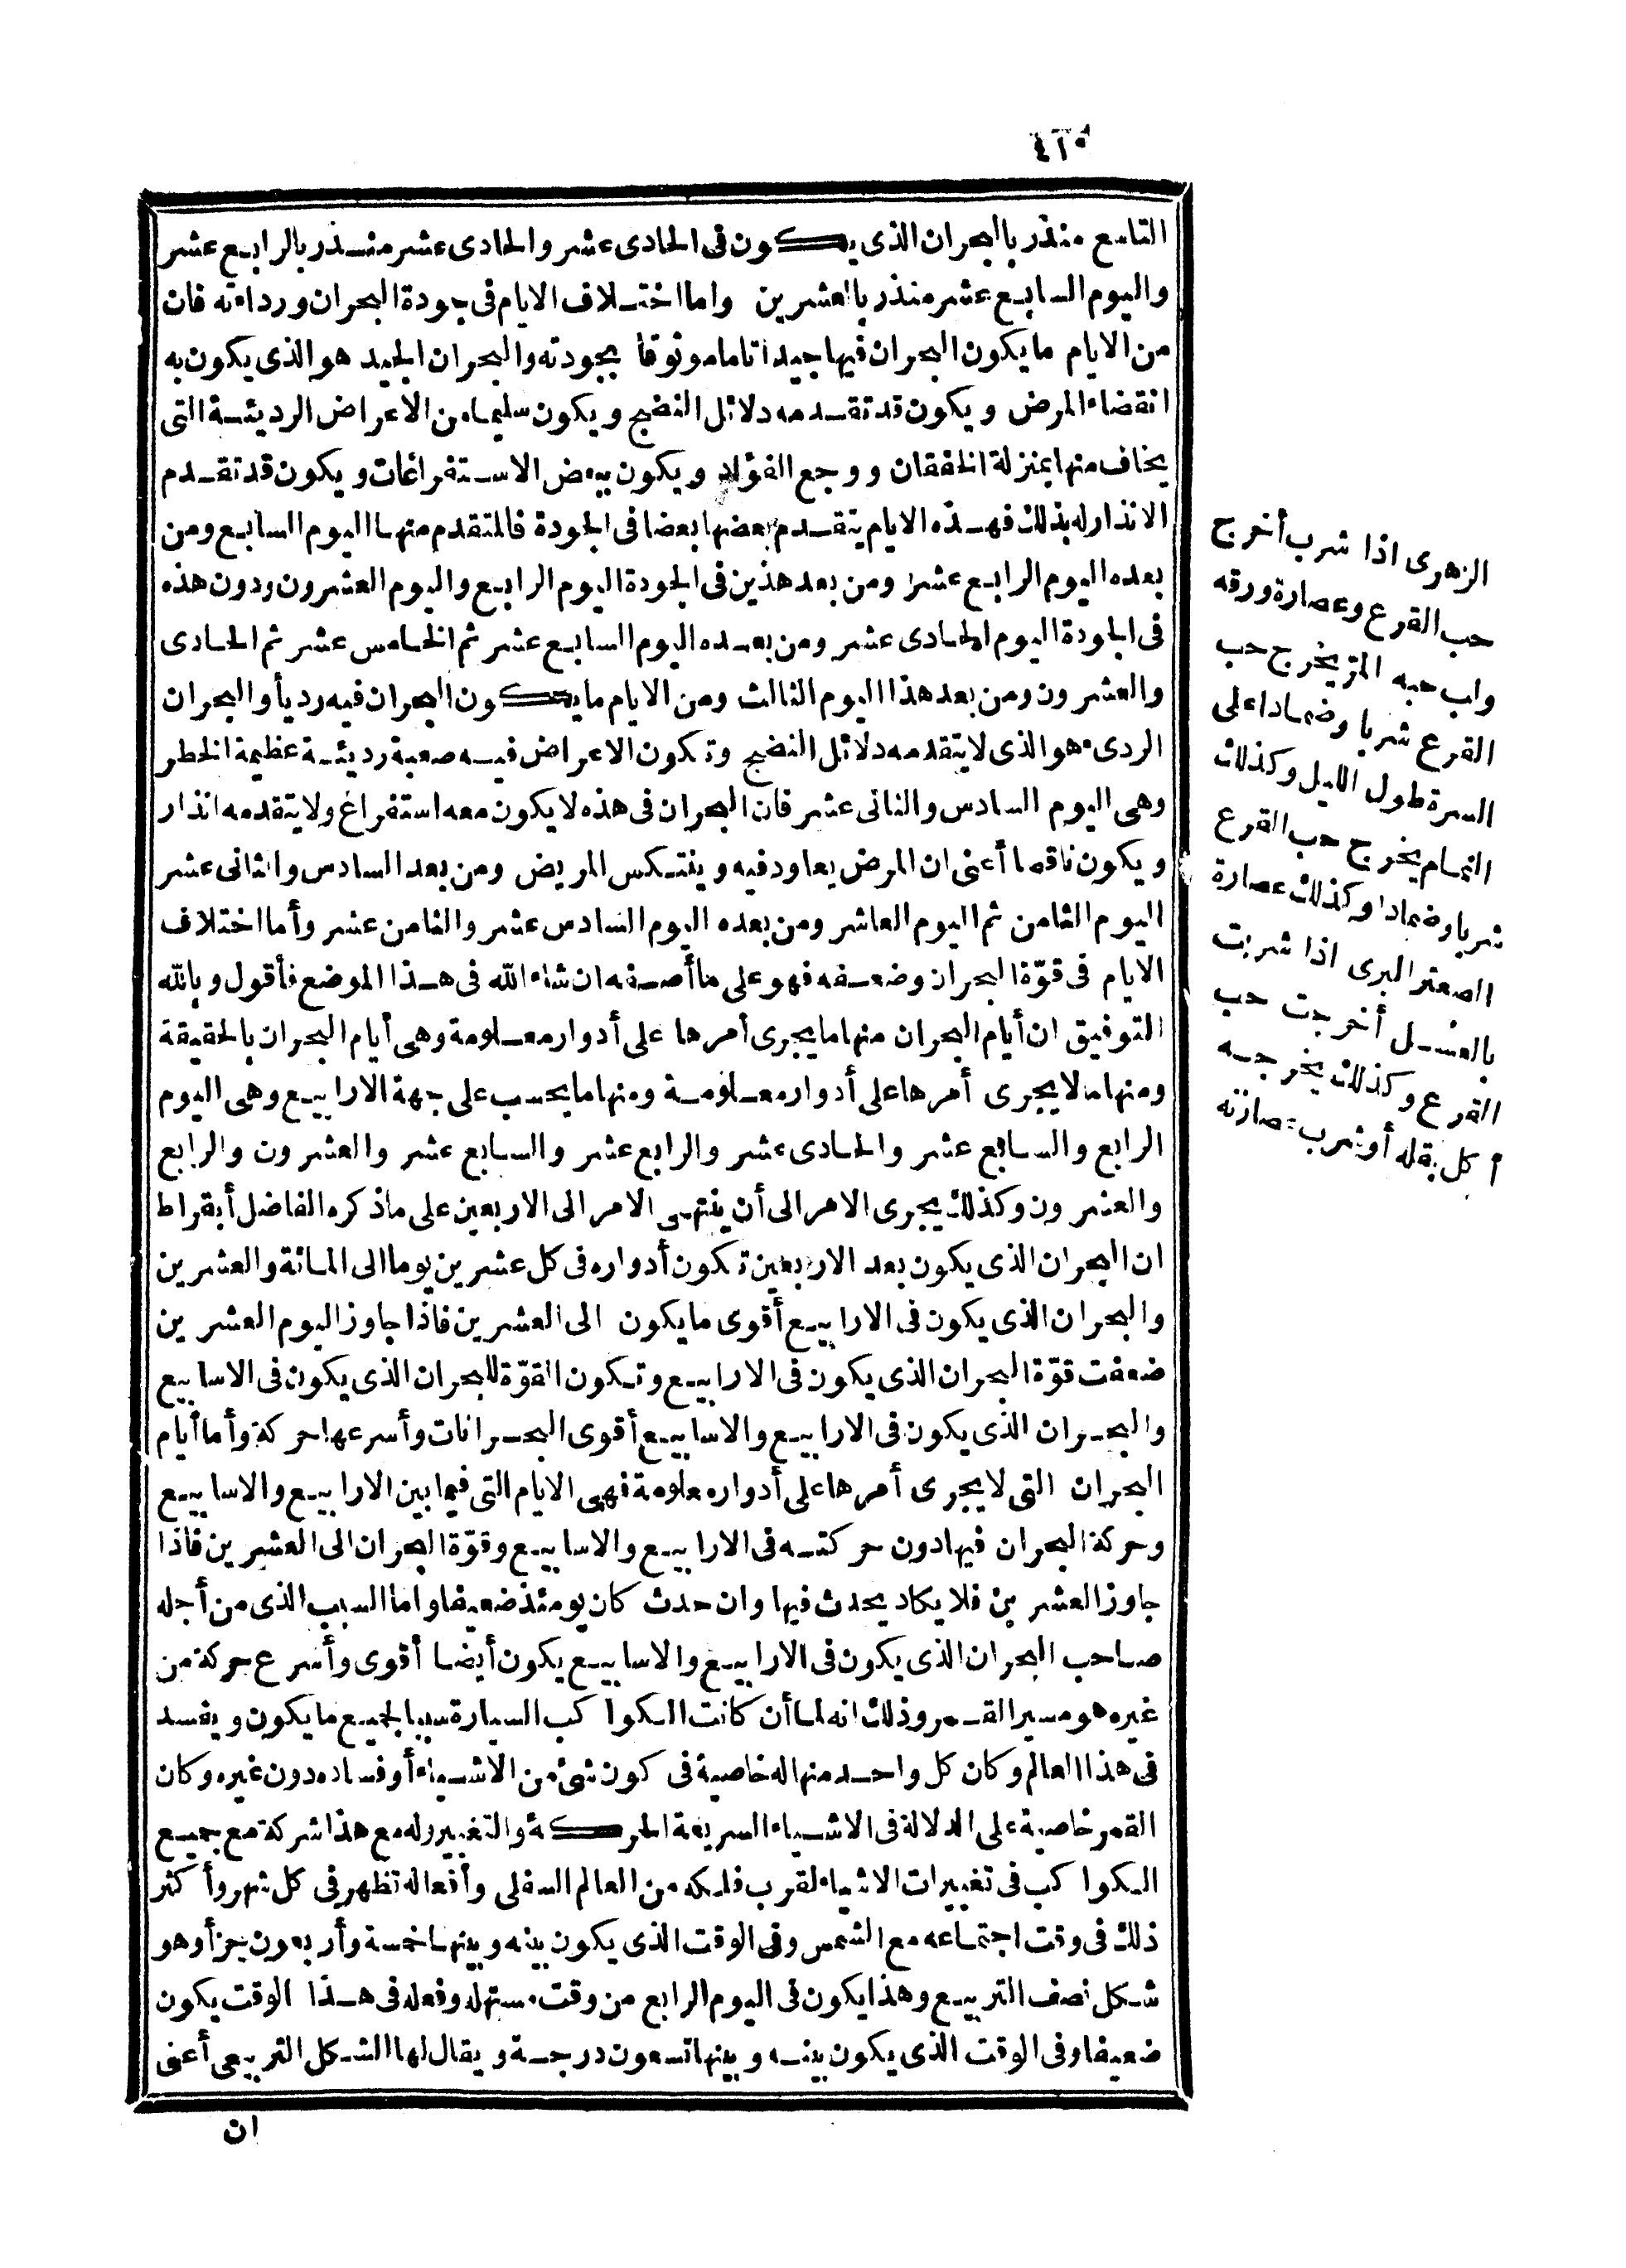 ٤١٥
التاسع منذر بالبحران الذى يكون فى الحادى عشر والحادى عشر منذر بالرابع عشر
واليوم السابع عشر منذر بالعشرين واما اختلاف الايام فى جودة البحران ورداءته فان
من الايام ما يكون البحران فيها جيدا تاما موثوقا بجودته والبحران الجيد هو الذى يكون به
انقضاء المرض ويكون قد تقدمه دلائل النضج ويكون سليما من الاعراض الرديئة التى
يخاف منها بمنزلة الخفقان ووجع الفؤاد ويكون ببعض الاستفراغات ويكون قد تقدم
الانذار له بذلك فهذه الايام يتقدم بعضها بعضا فى الجودة فالمتقدم منها اليوم السابع ومن
بعده اليوم الرابع عشر ومن بعد هذين فى الجودة اليوم الرابع واليوم العشرون ودون هذه
فى الجودة اليوم الحادى عشر ومن بعده اليوم السابع عشر ثم الخامس عشر ثم الحادى
والعشرون ومن بعد هذا اليوم الثالث ومن الايام ما يكون البحران فيه رديأ والبحران
الردىء هو الذى لا يتقدمه دلائل النضج وتكون الاعراض فيه صعبة رديئة عظيمة الخطر
وهى اليوم السادس والثانى عشر فان البحران فى هذه لا يكون معه استفراغ ولا يتقدمه انذار
ويكون ناقصا أعنى ان المرض يعاود فيه وينتكس المريض ومن بعد السادس والثانى عشر
اليوم الثامن ثم اليوم العاشر ومن بعده اليوم السادس عشر والثامن عشر وأما اختلاف
الايام فى قوّة البحران وضعفه فهو على ما أصفه ان شاء الله فى هذا الموضع فأقول وبالله
التوفيق ان أيام البحران منها ما يجرى أمرها على أدوار معلومة وهى أيام البحران بالحقيقة
ومنها ما لا يجرى أمرها على أدوار معلومة ومنها ما يحسب على جهة الارابيع وهى اليوم
الرابع والسابع عشر والحادى عشر والرابع عشر والسابع عشر والعشرون والرابع
والعشرون وكذلك يجرى الامر الى أن ينتهى الامر الى الاربعين على ما ذكره الفاضل أبقراط
ان البحران الذى يكون بعد الاربعين تكون أدواره فى كل عشرين يوما الى المائة والعشرين
والبحران الذى يكون فى الارابيع أقوى ما يكون الى العشرين فاذا جاوز اليوم العشرين
ضعفت قوّة البحران الذى يكون فى الارابيع وتكون القوّة للبحران الذى يكون فى الاسابيع
والبحران الذى يكون فى الارابيع والاسابيع أقوى البحرانات وأسرعها حركة وأما أيام
البحران التى لا يجرى أمرها على أدوار معلومة فهى الايام التى فيما بين الارابيع والاسابيع
وحركة البحران فيها دون حركته فى الارابيع والاسابيع وقوّة البحران الى العشرين فاذا
جاوز العشرين فلا يكاد يحدث فيها وان حدث كان يومئذ ضعيفا واما السبب الذى من أجله
صاحب البحران الذى يكون فى الارابيع والاسابيع يكون أيضا أقوى وأسرع حركة من
غيره هو مسير القمر وذلك انه لما أن كانت الكواكب السيارة سببا لجميع ما يكون ويفسد
فى هذا العالم وكان كل واحد منها له خاصية فى كون شئ من الاشياء أو فساده دون غيره وكان
القمر خاصية على الدلالة فى الاشياء السريعة الحركة والتغيير وله مع هذا شركة مع جميع
الكواكب فى تغييرات الاشياء لقرب فلكه من العالم السفلى وأفعاله تظهر فى كل شهر وأكثر
ذلك فى وقت اجتماعه مع الشمس وفى الوقت الذى يكون بينه وبينها خمسة وأربعون جزأ وهو
شكل نصف التربيع وهذا يكون فى اليوم الرابع من وقت مستهله وفعله فى هذا الوقت يكون
ضعيفا وفى الوقت الذى يكون بينه وبينها تسعون درجة ويقال لها الشكل التربيعى أعنى
ان
الزهرى اذا شرب أخرج
حب القرع وعصارة ورقه
واب حبه المرّ يخرج حب
القرع شربا وضمادا على
السرة طول الليل وكذلك
النمام يخرج حب القرع
شربا وضمادا وكذلك عصارة
الصعتر البرى اذا شربت
بالعسل أخرجت حب
القرع وكذلك يخرجه
أكل بقله أو شرب عصارته